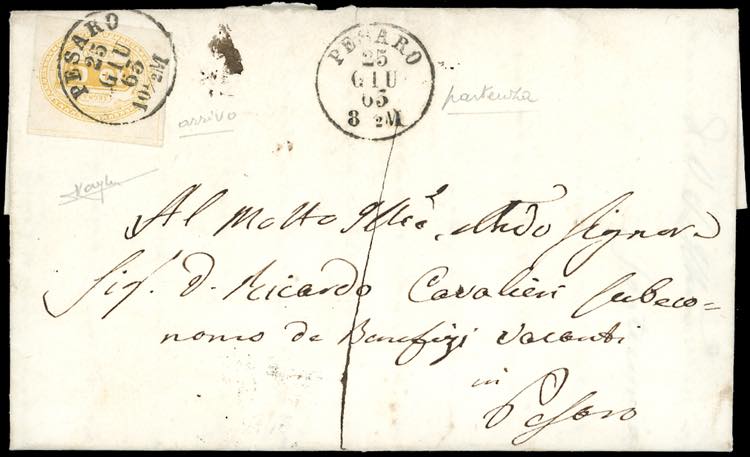 PESARO
25
GIU
65
10½M
PESARO
25
GIU
65
8 2M
arrivo
partenza
Al Molto Ill. Rndo Signor
Sig. D. Ricardo Cavalieri Subeco-
nomo de Benefizj Vacanti
in
Pesaro